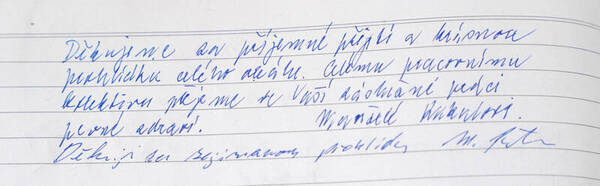 Děkujeme za příjemné přijetí a krásnou
prohlídku celého areálu. Celému pracovnímu
kolektivu přejeme ve Vaší záslužné práci
pevné zdraví. Manželé
Děkuji za zajímavou prohlídku M.